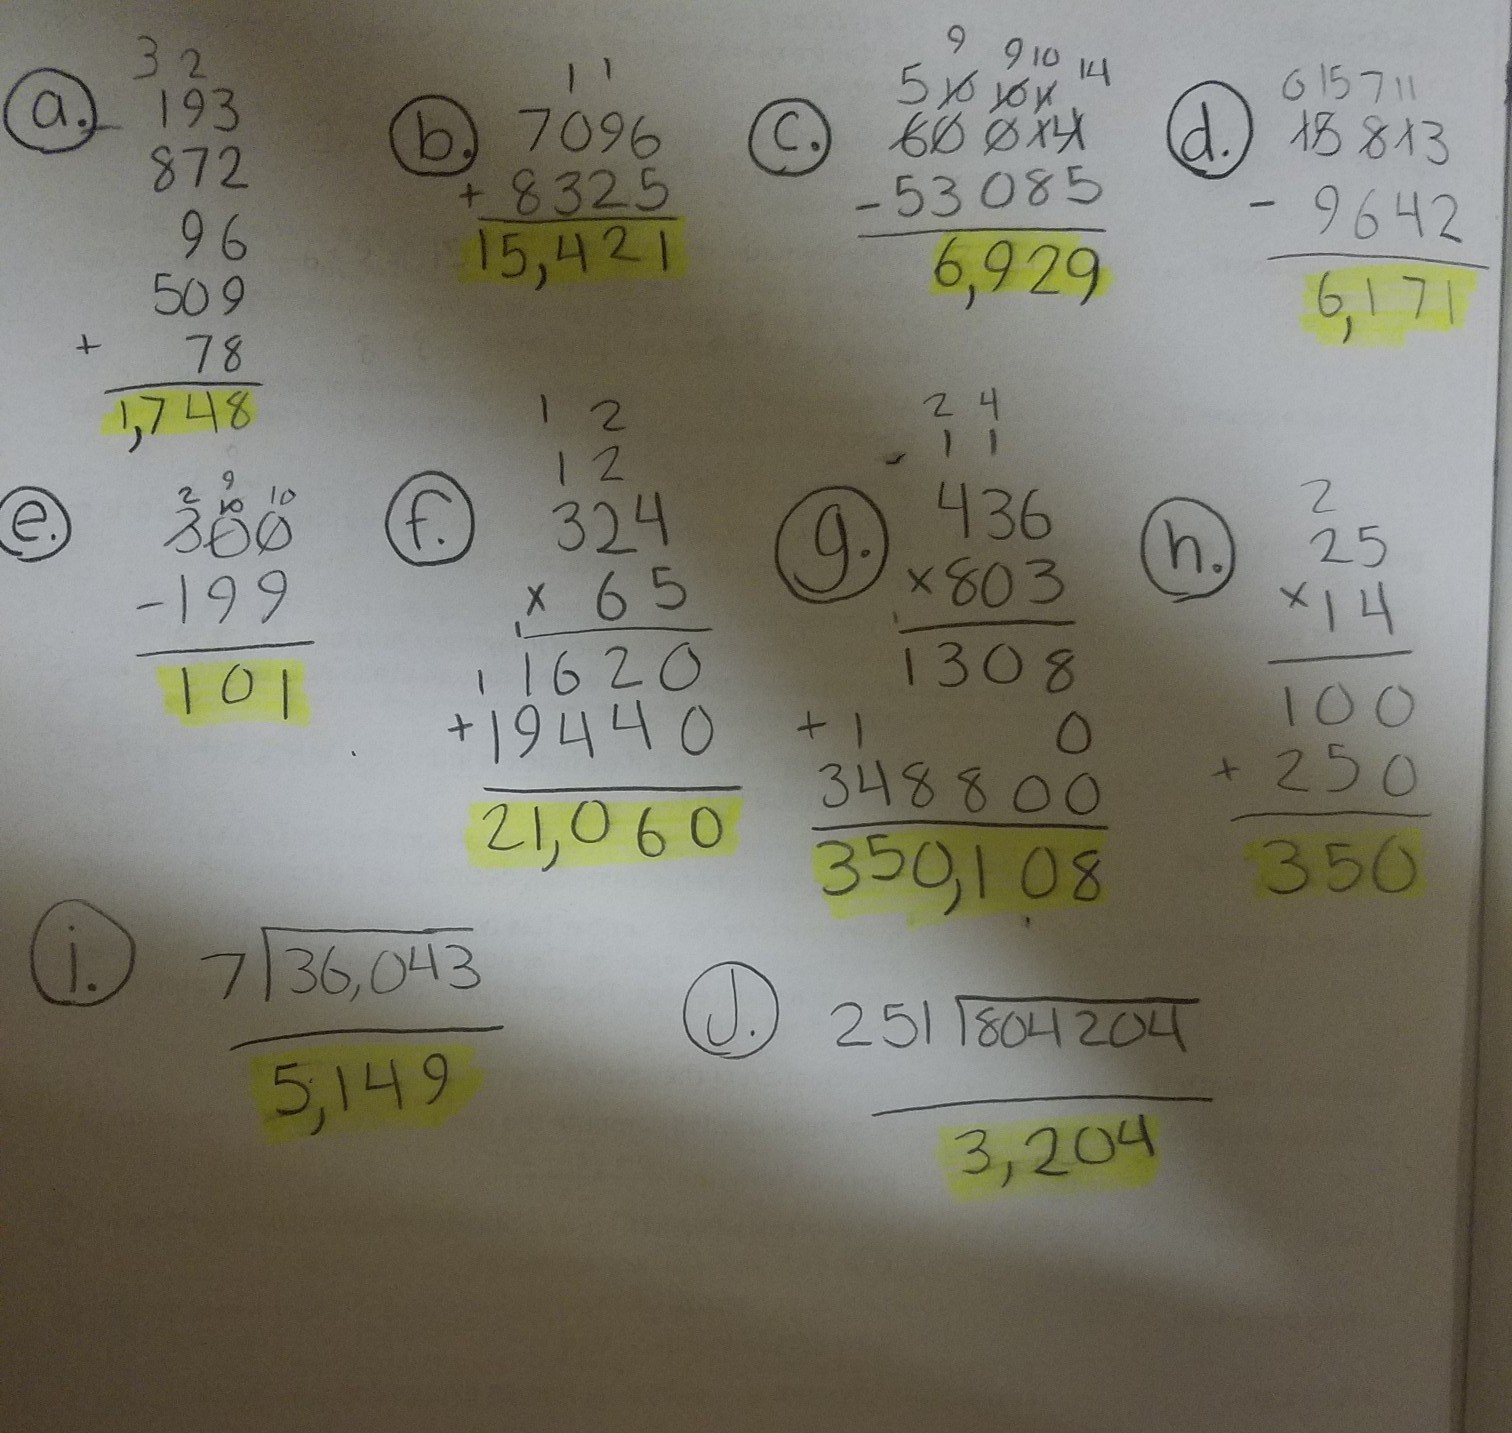 a.
3 2
193
872
96
509
+ 78
1,748
b.
1 1
7096
+ 8325
15,421
c.
9 9 10
5 10 10 1 14
60014
- 53085
6,929
d.
6 15 7 11
15813
- 9642
6,171
e.
9
2 10 10
300
- 199
101
f.
1 2
1 2
324
x 65
1
1 1620
+ 19440
21,060
g.
2 4
1 1
436
x 803
1308
+ 1 0
348800
350,108
h.
2
25
x 14
100
+ 250
350
i.
7 36,043
5,149
J.
251 804204
3,204